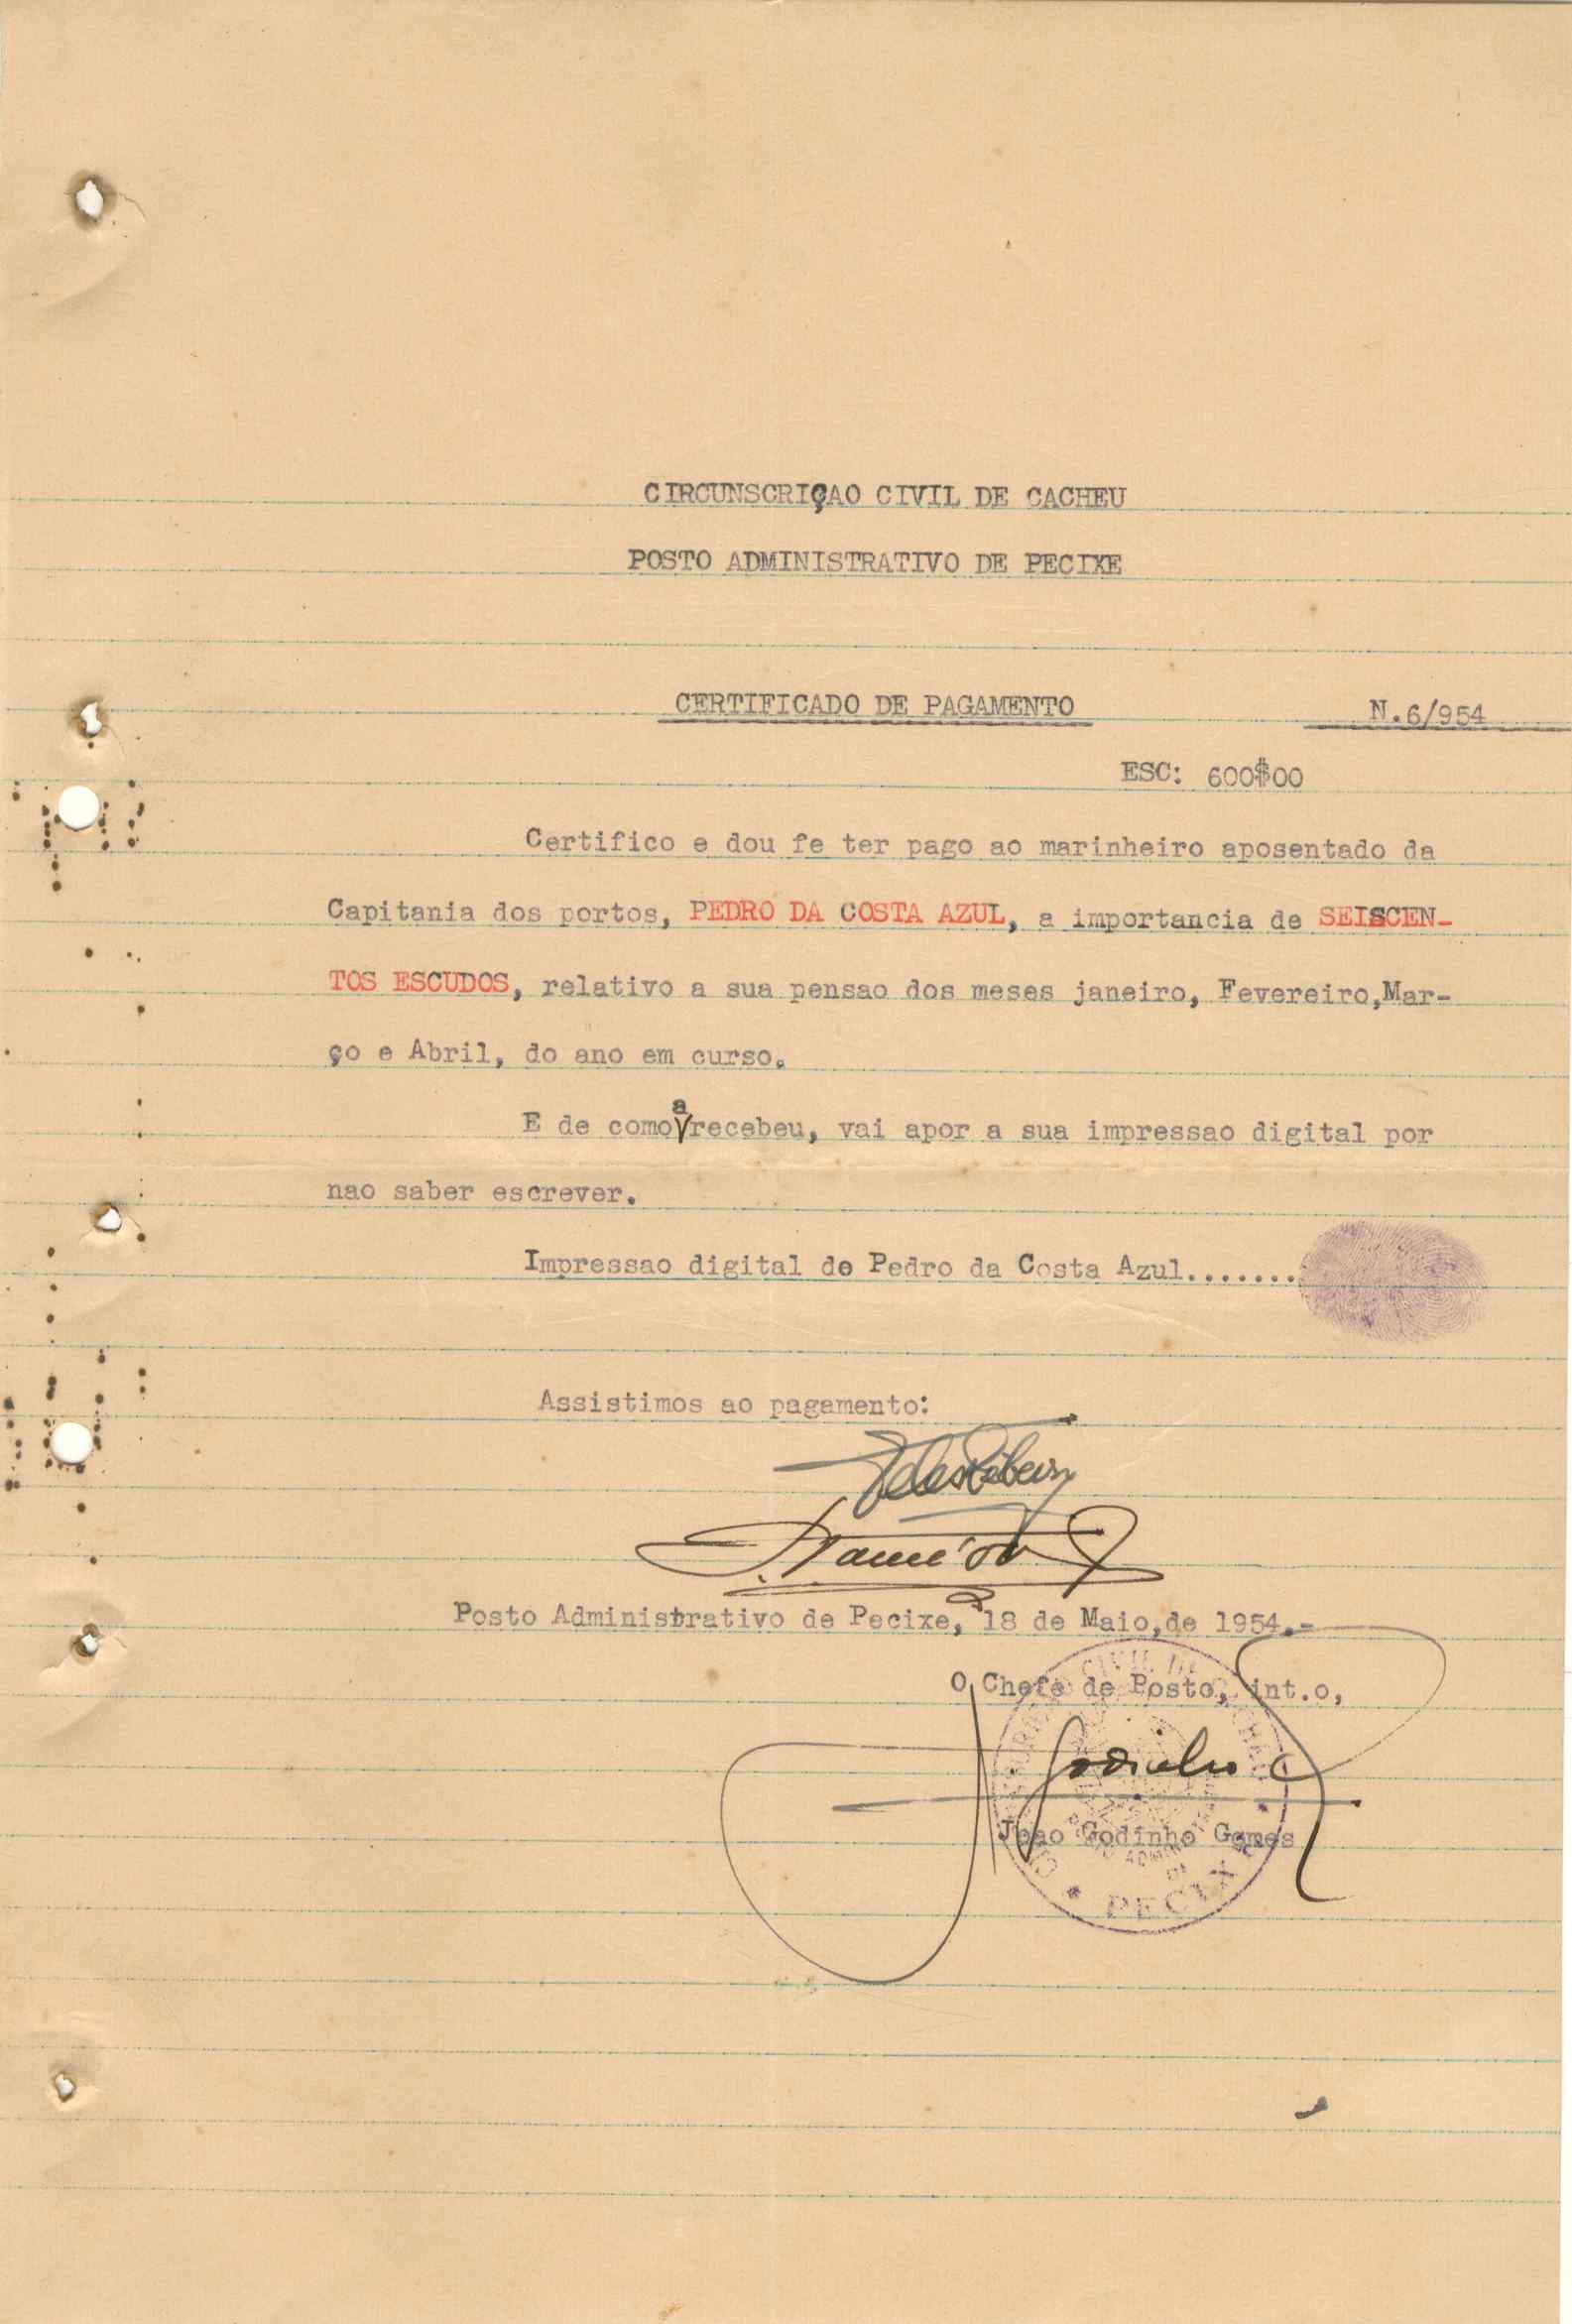 CIRCUNSCRIÇAO CIVIL DE CACHEU
POSTO ADMINISTRATIVO DE PECIXE
CERTIFICADO DE PAGAMENTO N.6/954
ESC: 600$00
Certifico e dou fe ter pago ao marinheiro aposentado da
Capitania dos portos, PEDRO DA COSTA AZUL, a importancia de SEISCEN-
TOS ESCUDOS, relativo a sua pensao dos meses janeiro, Fevereiro,Mar-
ço e Abril, do ano em curso.
E de como a recebeu, vai apor a sua impressao digital por
nao saber escrever.
Impressao digital de Pedro da Costa Azul.......
Assistimos ao pagamento:
Posto Administrativo de Pecixe, 18 de Maio,de 1954.-
O Chefe de Posto, int.o,
Godinho
Joao Godinho Gomes
PECIXE